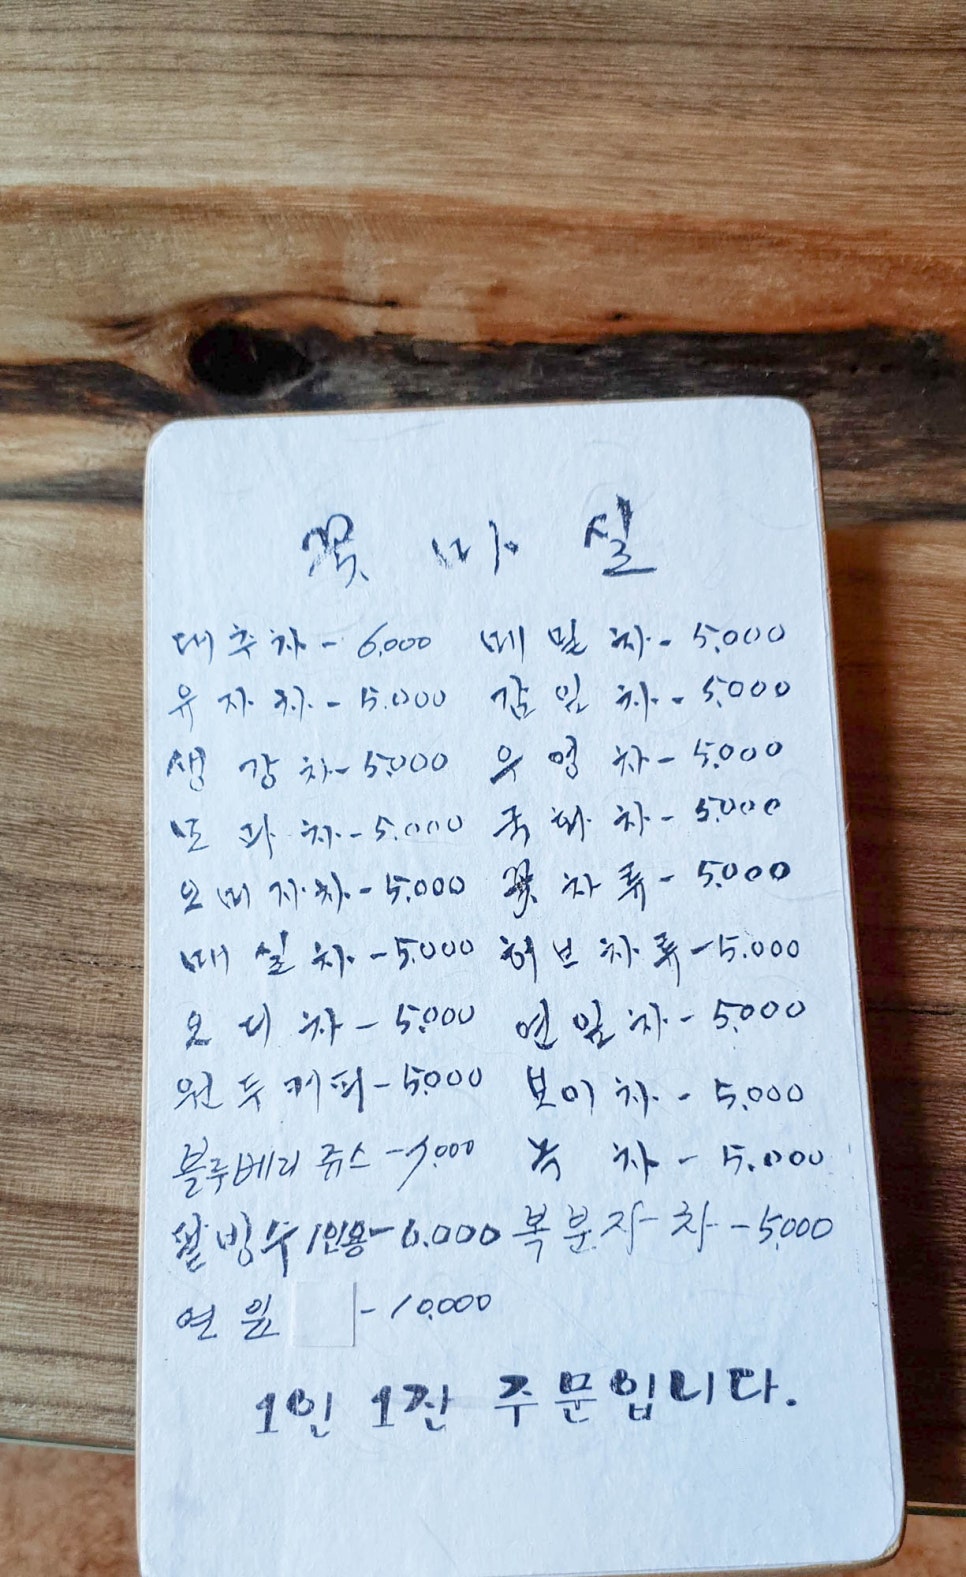 꽃 마 실
대추차 - 6,000 메밀차 - 5,000
유자차 - 5,000 감잎차 - 5,000
생강차 - 5,000 우엉차 - 5,000
모과차 - 5,000 국화차 - 5,000
오미자차 - 5,000 꽃차류 - 5,000
매실차 - 5,000 허브차류 - 5,000
오디차 - 5,000 연잎차 - 5,000
원두커피 - 5,000 보이차 - 5,000
블루베리 쥬스 - 녹차 - 5,000
빙수 1인용 - 6,000 복분자차 - 5,000
연잎 - 10,000
1인 1잔 주문입니다.